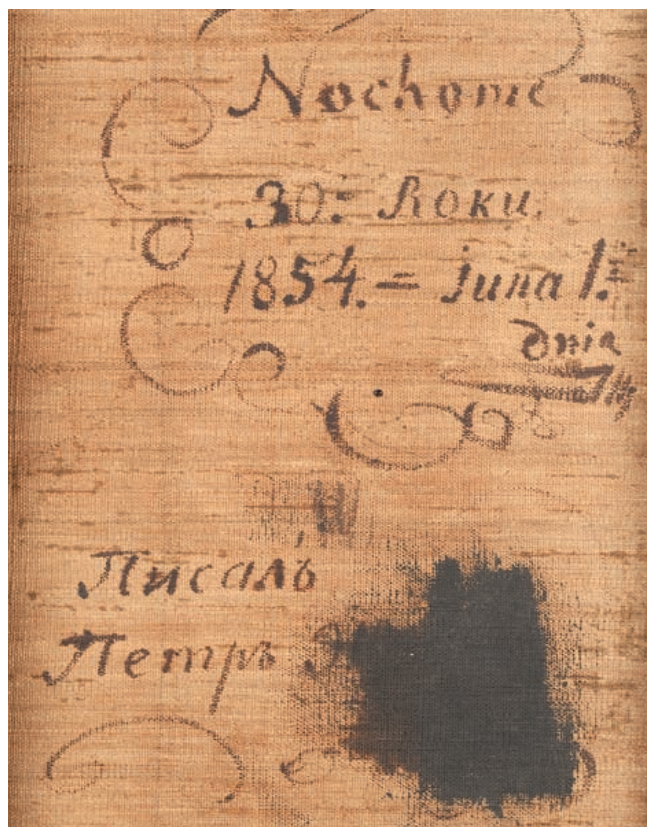 Nochome
30: Roku
1854. = juna 1.
dnia
Писалъ
Петръ